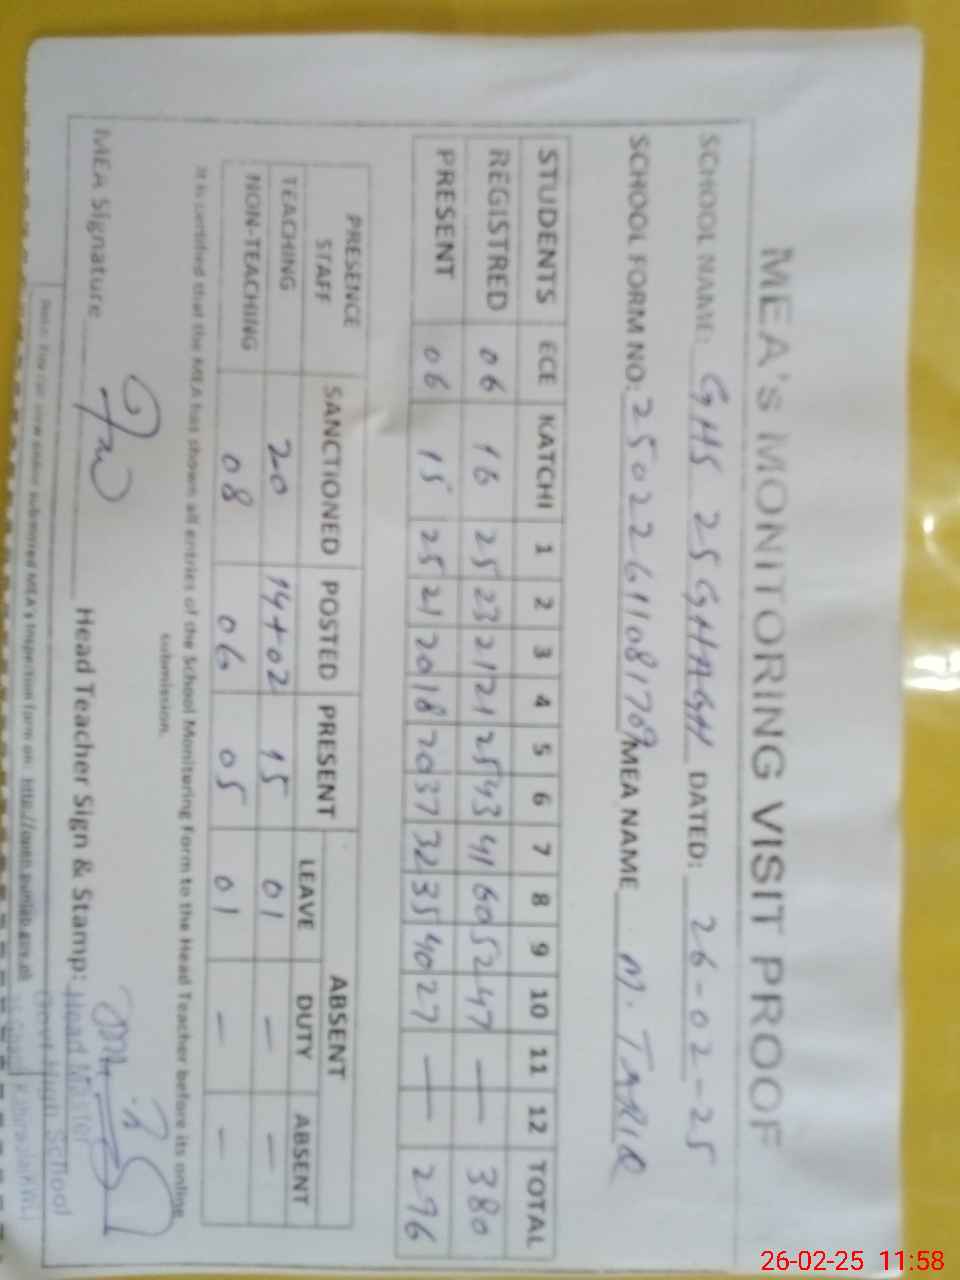 MEA'S MONITORING VISIT PROOF
SCHOOL NAME: GHS 25 GHAGH DATED: 26-02-25
SCHOOL FORM NO: 25022611081769 MEA NAME M. TARIQ
STUDENTS ECE KATCHI 1 2 3 4 5 6 7 8 9 10 11 12 TOTAL
REGISTRED 06 16 25 23 21 21 25 43 41 60 52 47 — — 380
PRESENT 06 15 25 21 20 18 20 37 32 35 40 27 — — 296
PRESENCE STAFF SANCTIONED POSTED PRESENT ABSENT
LEAVE DUTY ABSENT
TEACHING 20 14+02 15 01 — —
NON-TEACHING 08 06 05 01 — —
It is certified that the MEA has shown all entries of the School Monitoring Form to the Head Teacher before its online
submission.
MEA Signature Head Teacher Sign & Stamp:
Head Master
Govt High School
Note: You can view online submitted MEA's Inspection form on:
26-02-25 11:58